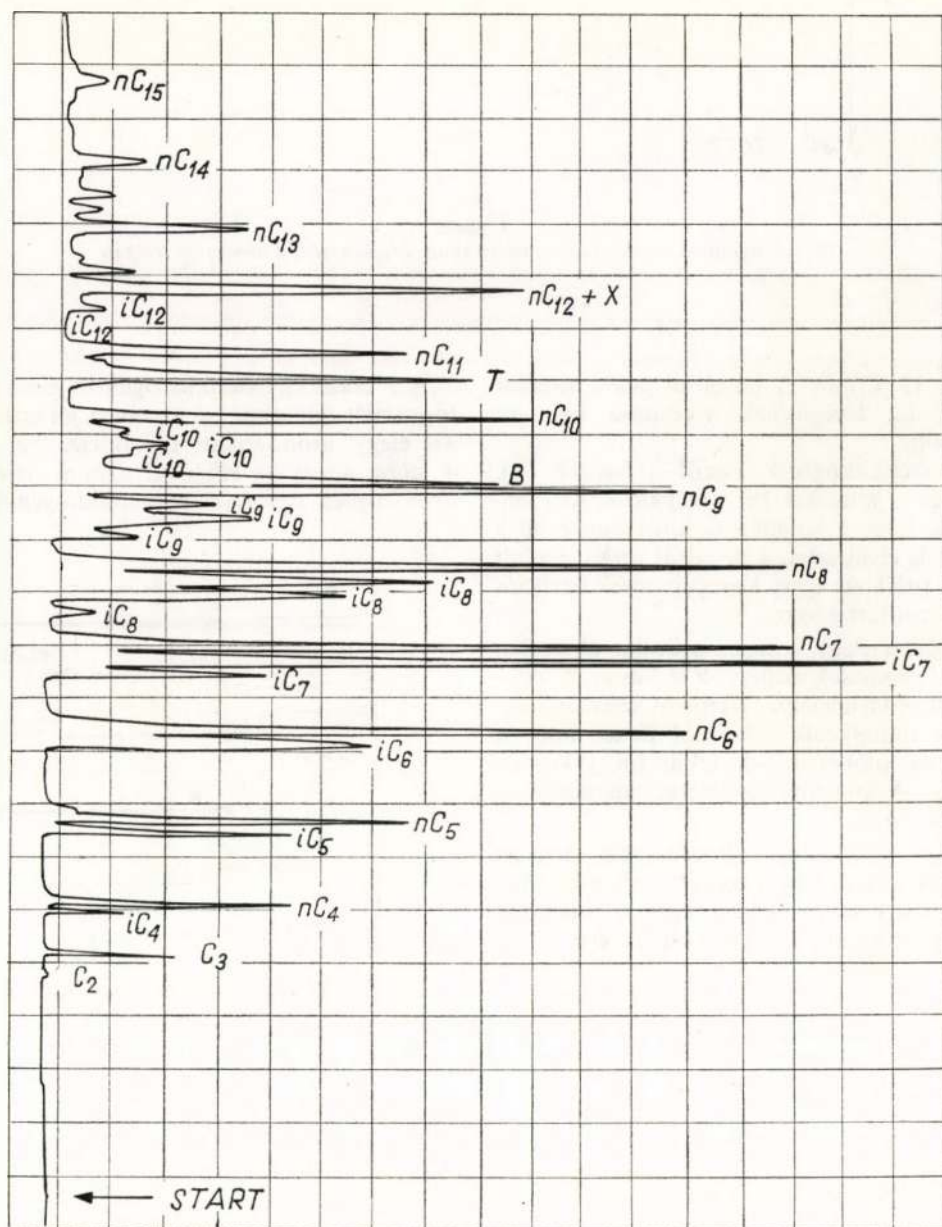 nC15
nC14
nC13
nC12 + X
iC12
iC12
nC11
T
nC10
iC10
iC10
iC10
B
nC9
iC9
iC9
iC9
nC8
iC8
iC8
iC8
nC7
iC7
iC7
nC6
iC6
nC5
iC5
nC4
iC4
C3
C2
START